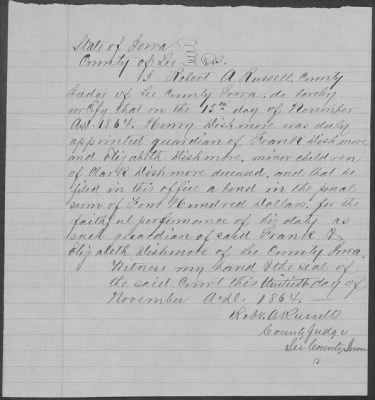 State of Iowa
County of Lee } SS.
I Robert A Russell, County
Judge of Lee County Iowa, do hereby
certify that on the 15th day of November
A.D. 1864. Henry Dishmore was duly
appointed guardian of Frank Dishmore
and Elizabeth Dishmore, minor children
of Clark Dishmore deceased, and that he
filed in this office a bond in the penal
sum of Four Hundred Dollars, for the
faithful performance of his duty as
such guardian of said Frank &
Elizabeth Dishmore of Lee County Iowa.
Witness my hand & the seal of
the said Court this day of
November A.D. 1864.
Robt. A Russell
County Judge
Lee County, Iowa